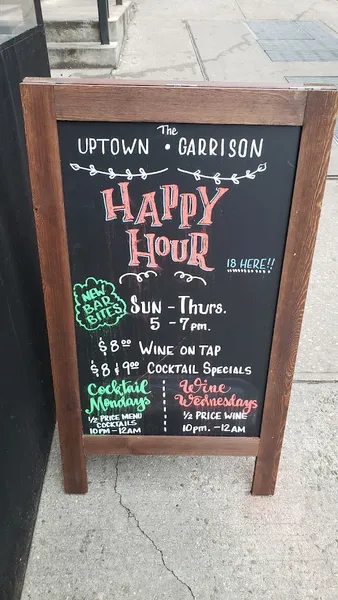 The
UPTOWN • GARRISON
HAPPY
HOUR
IS HERE!!
NEW
BAR
BITES
SUN - THURS.
5 - 7pm.
$8⁰⁰ WINE ON TAP
$8 & 9⁰⁰ COCKTAIL SPECIALS
Cocktail
Mondays
½ PRICE MENU
COCKTAILS
10PM - 12AM
Wine
Wednesdays
½ PRICE WINE
10pm. - 12AM